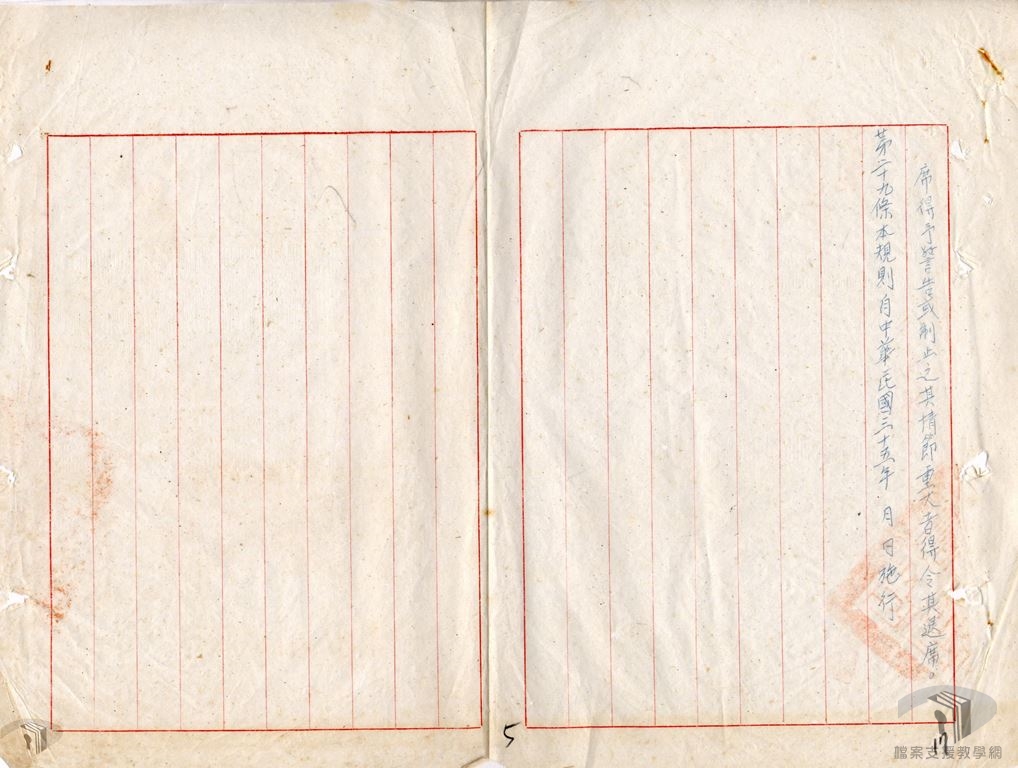 席得予警告或制止之其情節重大者得令其退席。
第二十九條本規則自中華民國三十五年 月 日施行
5
17
檔案支援教學網